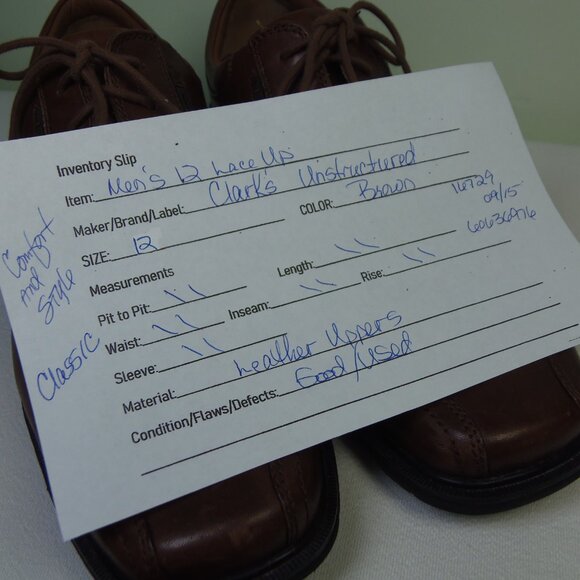 Inventory Slip
Item: Men's 12 Lace Up
Maker/Brand/Label: Clark's Unstructured
SIZE: 12 COLOR: Brown
16729
09/15
60636976
Measurements
Pit to Pit: \ \ Length: \ \
Waist: \ \ Inseam: \ \ Rise: \ \
Sleeve: \ \
Material: Leather Uppers
Condition/Flaws/Defects: Good/Used
Comfort
and
Style
Classic